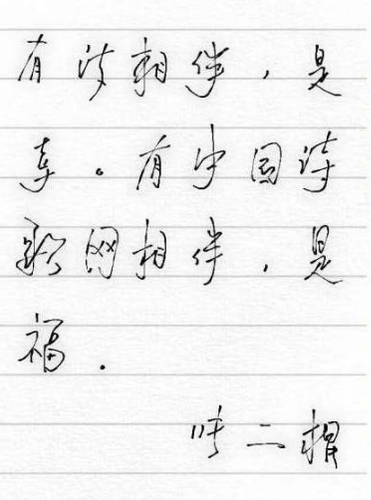 有诗相伴，是
幸。有中国诗
歌网相伴，是
福.
二